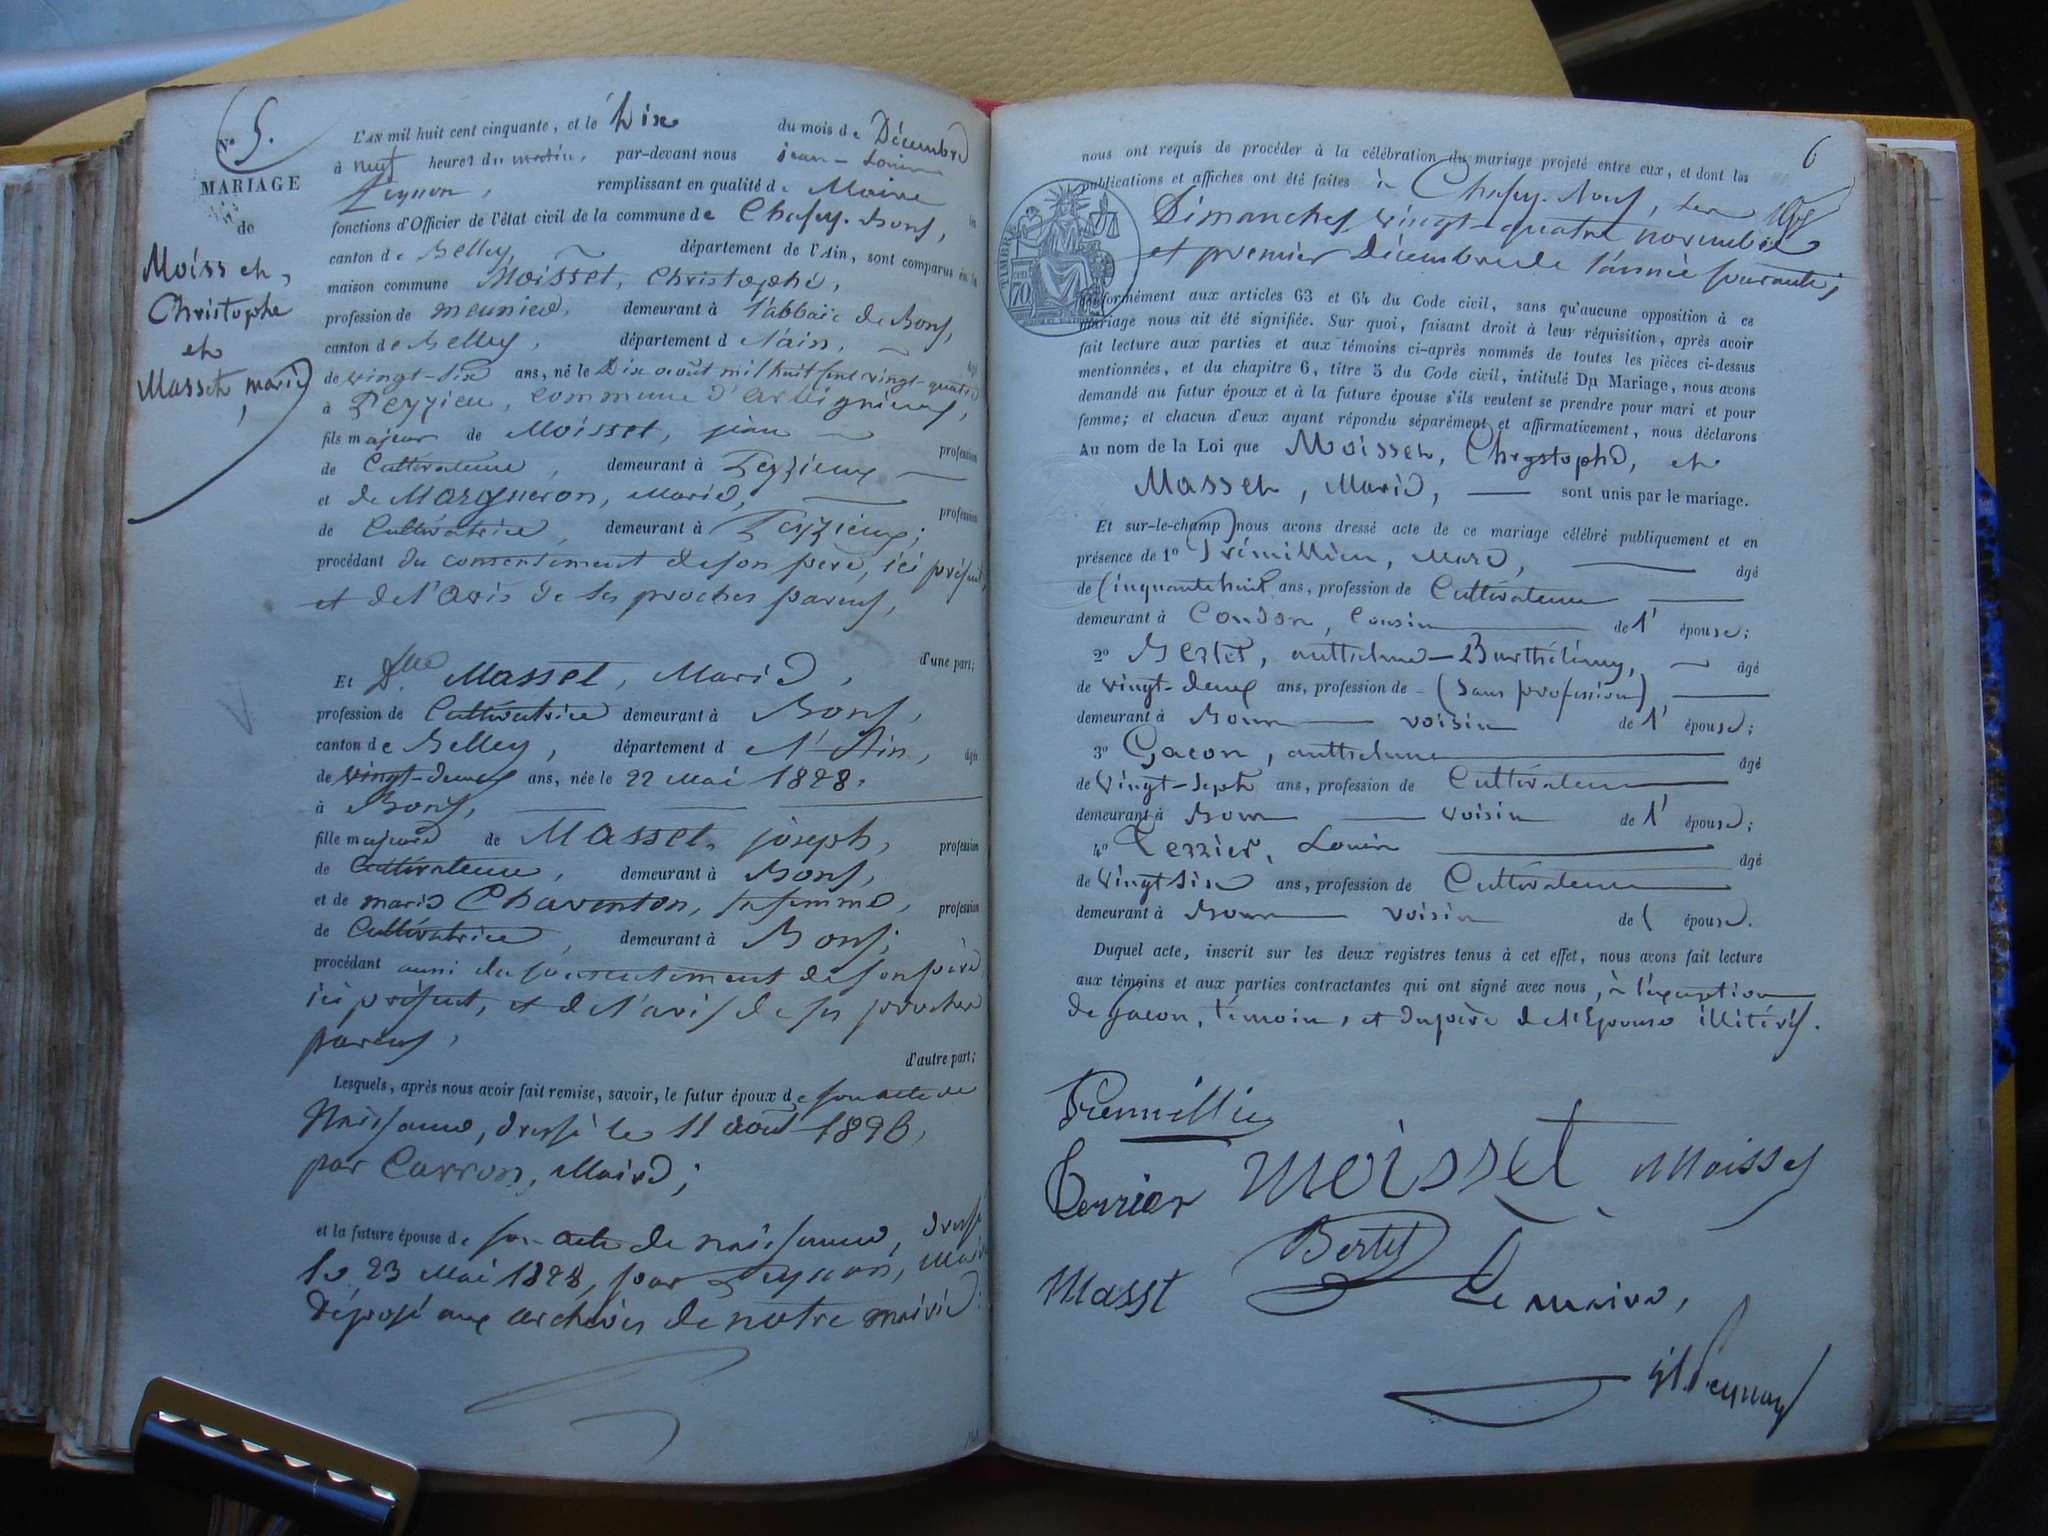 N° 5.
MARIAGE
de
Moisset,
Christophe
et
Masset, marie
L'AN mil huit cent cinquante, et le Dix du mois de Décembre
à neuf heures du matin, par-devant nous jean-Louis
Peynon, remplissant en qualité de Maire
fonctions d'Officier de l'état civil de la commune de Chasey-Bons,
canton de Belley, département de l'Ain, sont comparus en la
maison commune Moisset, Christophe,
profession de meunier, demeurant à l'abbaie de Bons,
canton de Belley, département d l'ain, âgé
de vingt-six ans, né le Dix août mil huit cent vingt-quatre
à Peyzieu, commune d'arbignieu,
fils majeur de Moisset, jean profession
de Cultivateur, demeurant à Peyzieux
et de Margueron, Marie, profession
de Cultivatrice, demeurant à Peyzieux;
procédant du consentement de son père, ici présent,
et de l'avis de ses proches parens,
d'une part;
Et Dlle Masset, Marie,
profession de Cultivatrice demeurant à Bons,
canton de Belley, département d l'Ain, âgée
de vingt-deux ans, née le 22 Mai 1828,
à Bons,
fille majeure de Masset, joseph, profession
de Cultivateur, demeurant à Bons,
et de marie Chaventon, sa femme, profession
de Cultivatrice, demeurant à Bons;
procédant aussi du consentement de son père
ici présent, et de l'avis de ses proches
parens,
d'autre part;
Lesquels, après nous avoir fait remise, savoir, le futur époux de son acte de
Naissance, dressé le 11 août
par Carron, Maire;
et la future épouse de son acte de naissance, dressé
le 23 Mai 1828, par Peynon, Maire
Déposé aux archives de notre mairie.
6
nous ont requis de procéder à la célébration du mariage projeté entre eux, et dont les
publications et affiches ont été faites à Chasey-Bons, les
Dimanches vingt-quatre novembre
et premier Décembre de l'année courante,
conformément aux articles 63 et 64 du Code civil, sans qu'aucune opposition à ce
mariage nous ait été signifiée. Sur quoi, faisant droit à leur réquisition, après avoir
fait lecture aux parties et aux témoins ci-après nommés de toutes les pièces ci-dessus
mentionnées, et du chapitre 6, titre 5 du Code civil, intitulé Du Mariage, nous avons
demandé au futur époux et à la future épouse s'ils veulent se prendre pour mari et pour
femme; et chacun d'eux ayant répondu séparément et affirmativement, nous déclarons
Au nom de la Loi que Moisset, Chrystophe, et
Masset, Marie, sont unis par le mariage.
Et sur-le-champ nous avons dressé acte de ce mariage célébré publiquement et en
présence de 1° Prémillieu, Marc, âgé
de Cinquante huit ans, profession de Cultivateur
demeurant à Condon, Cousin de l' épouse;
2° Bertet, anthelme-Barthélémy, âgé
de vingt-deux ans, profession de (Sans profession),
demeurant à Bons voisin de l' épouse;
3° Gacon, anthelme âgé
de Vingt-Sept ans, profession de Cultivateur
demeurant à Bons voisin de l' épouse;
4° Terrier, Louis âgé
de Vingt Six ans, profession de Cultivateur
demeurant à Bons voisin de l épouse.
Duquel acte, inscrit sur les deux registres tenus à cet effet, nous avons fait lecture
aux témoins et aux parties contractantes qui ont signé avec nous, à l'exception
de gacon, témoin, et du père de l'Epouse illitérés.
TIMBRE
70
Premillieu
Terrier Moisset Moisset
Bertet
Masst Le maire,
Peynon